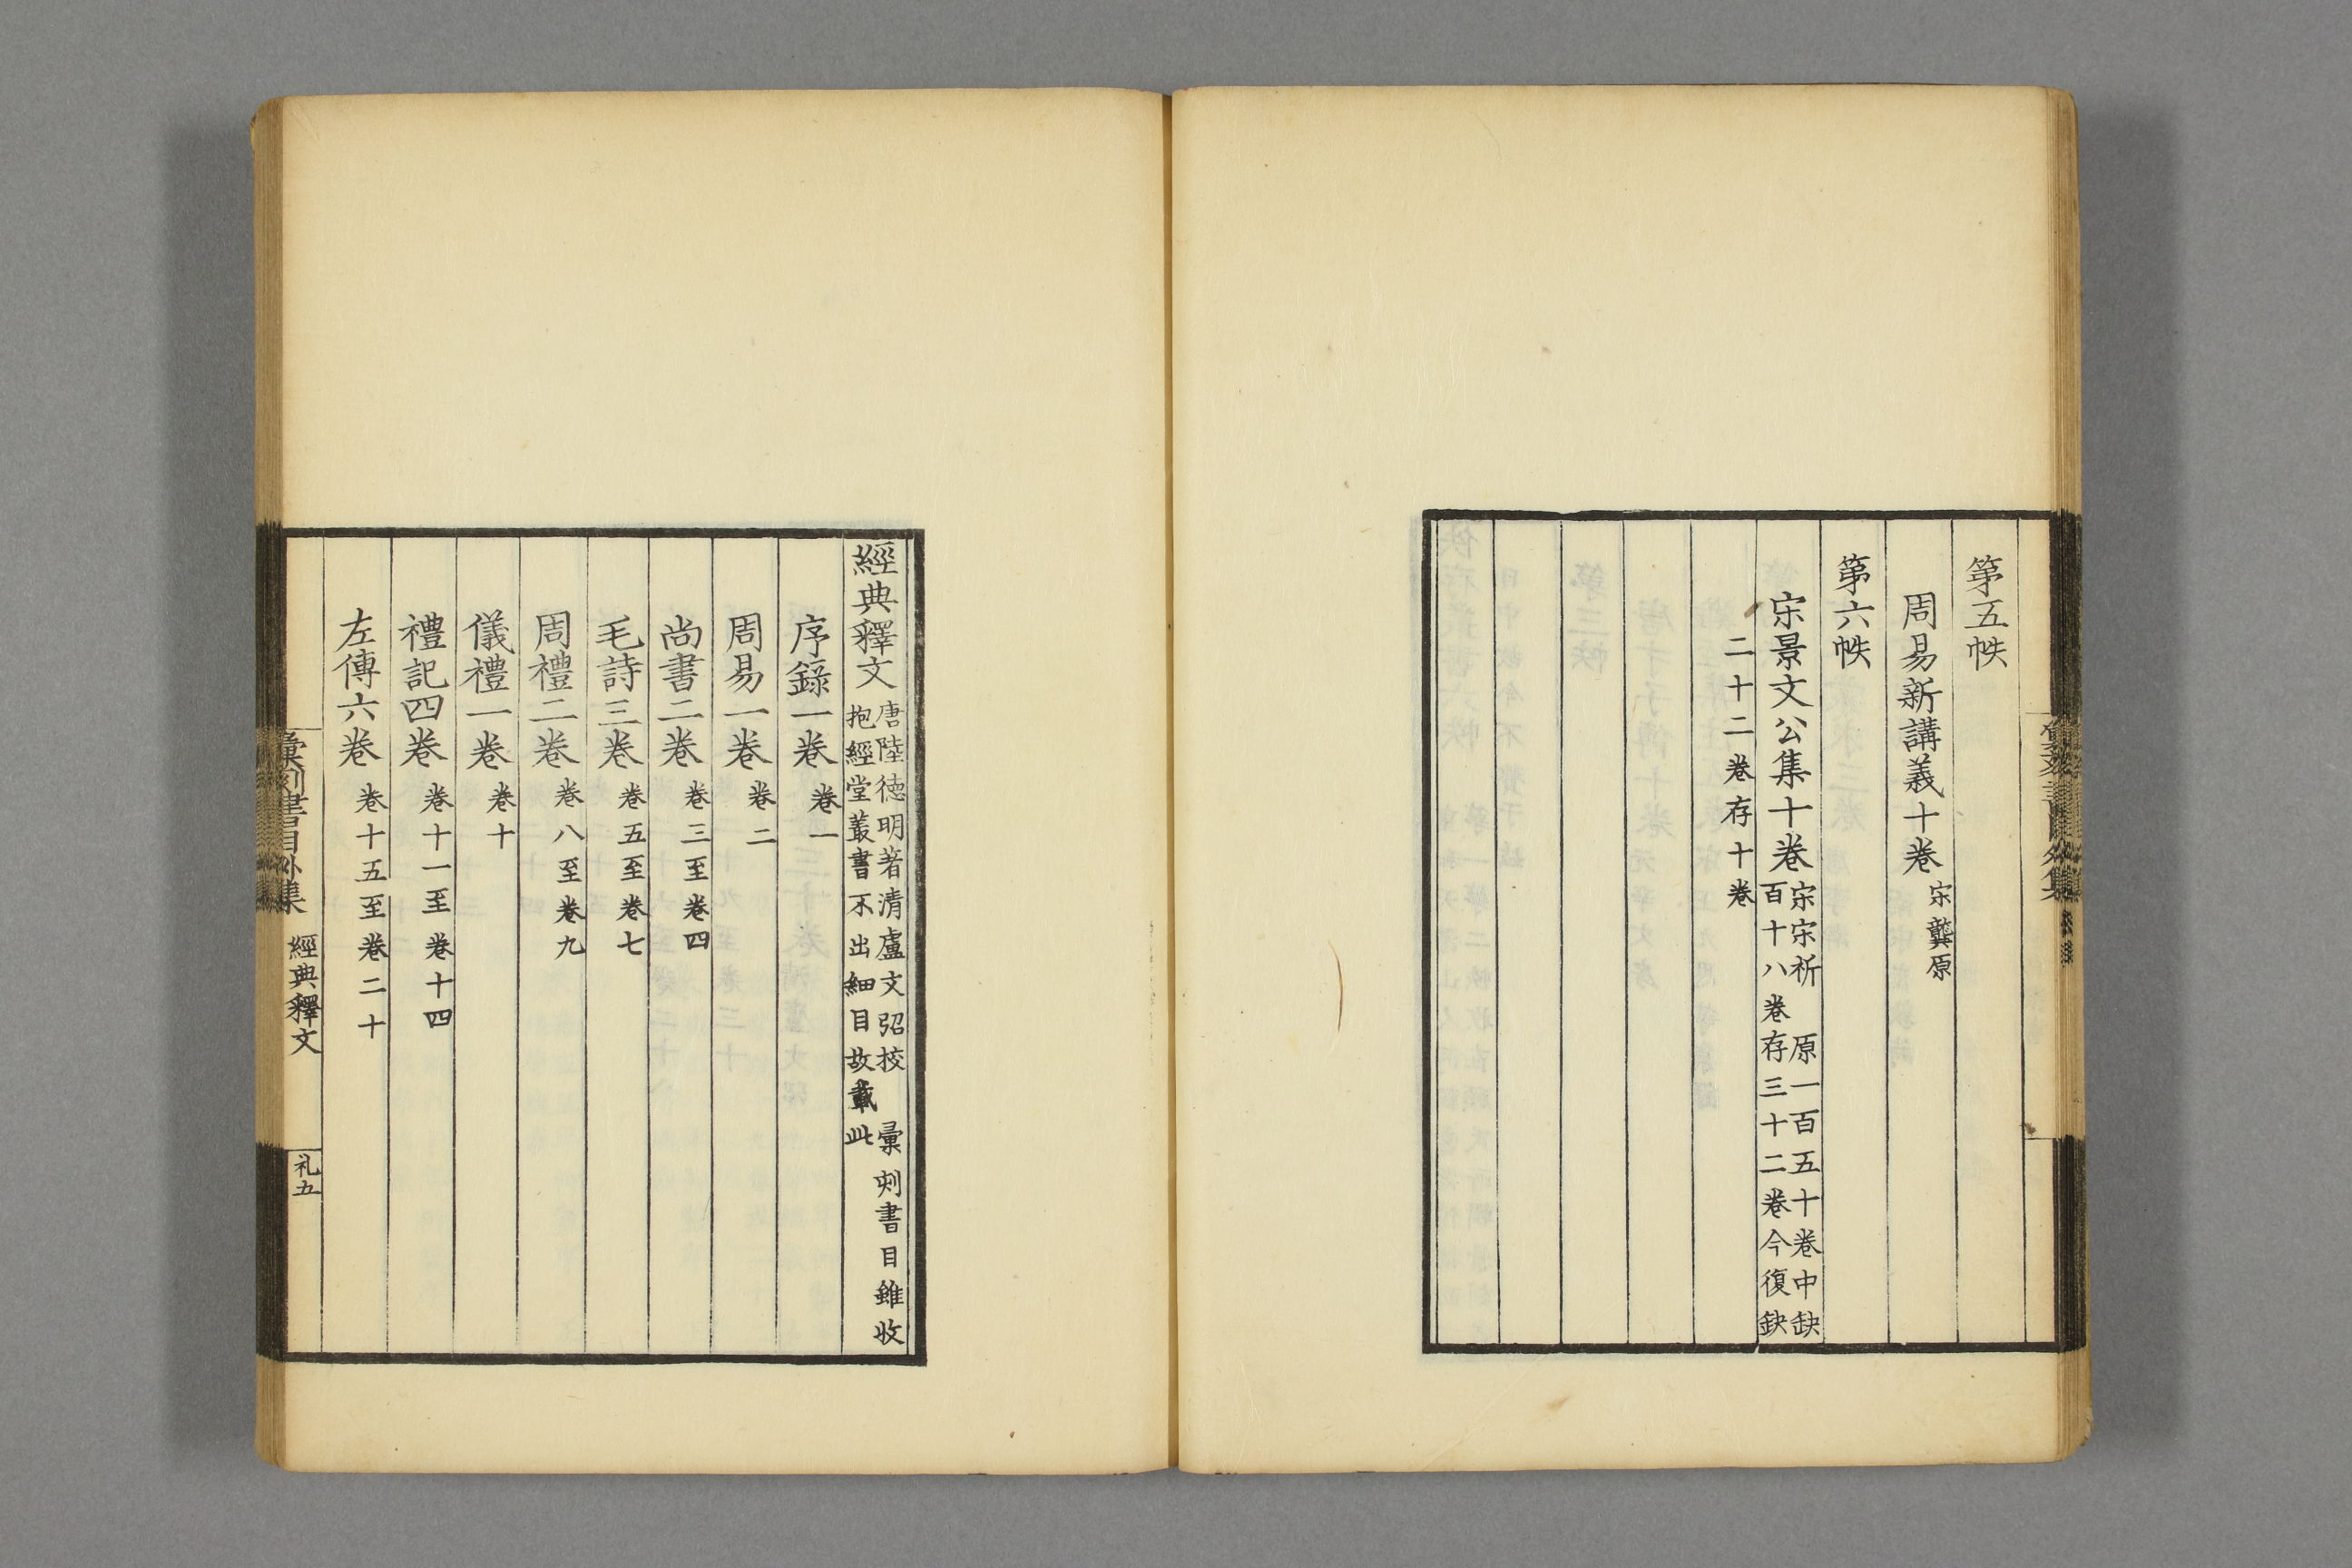 第五帙
周易新講義十卷 宋龔原
第六帙
宋景文公集十卷 宋宋祁 原一百五十卷中缺
百十八卷存三十二卷今復缺
二十二卷存十卷
經典釋文 唐陸德明著清盧文弨校 彙刻書目雖收
抱經堂叢書不出細目故載此
序錄一卷 卷一
周易一卷 卷二
尚書二卷 卷三至卷四
毛詩三卷 卷五至卷七
周禮二卷 卷八至卷九
儀禮一卷 卷十
禮記四卷 卷十一至卷十四
左傳六卷 卷十五至卷二十
彙刻書目外集 經典釋文 礼五